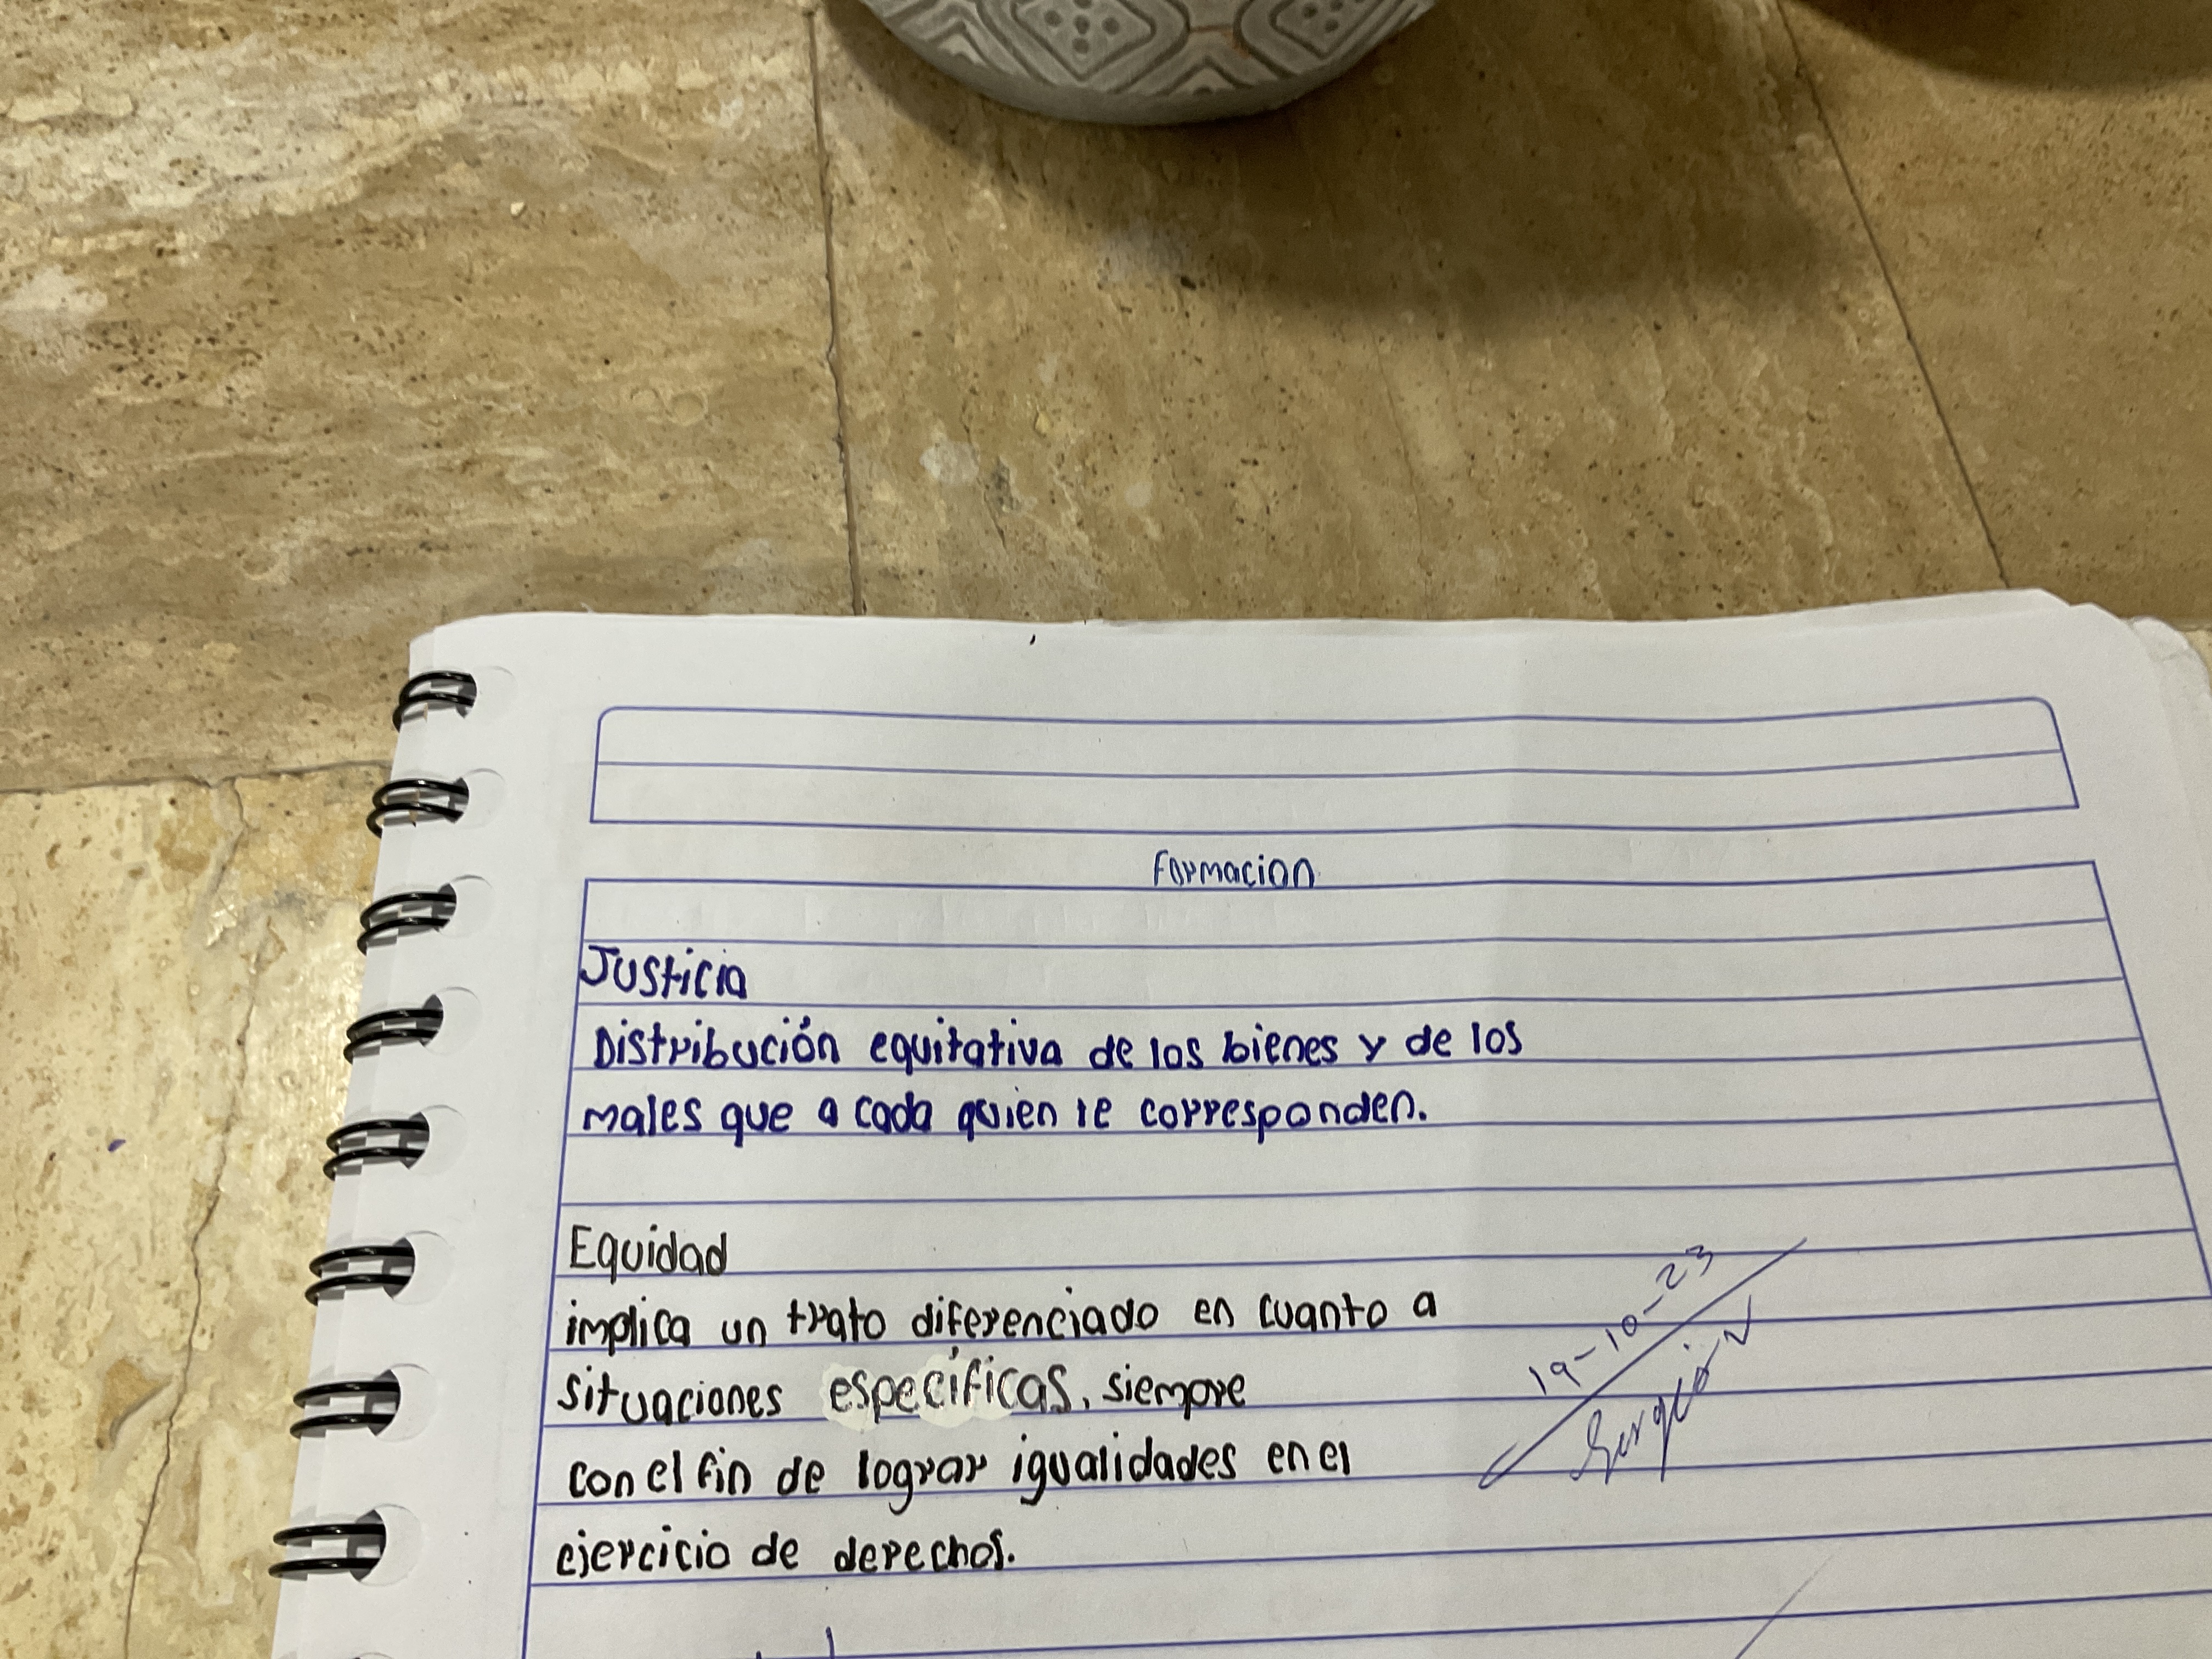 Formacion
Justicia
Distribución equitativa de los bienes y de los
males que a cada quien le corresponden.
Equidad
implica un trato diferenciado en cuanto a
situaciones específicas, siempre
con el fin de lograr igualidades en el
ejercicio de derechos.
19-10-23